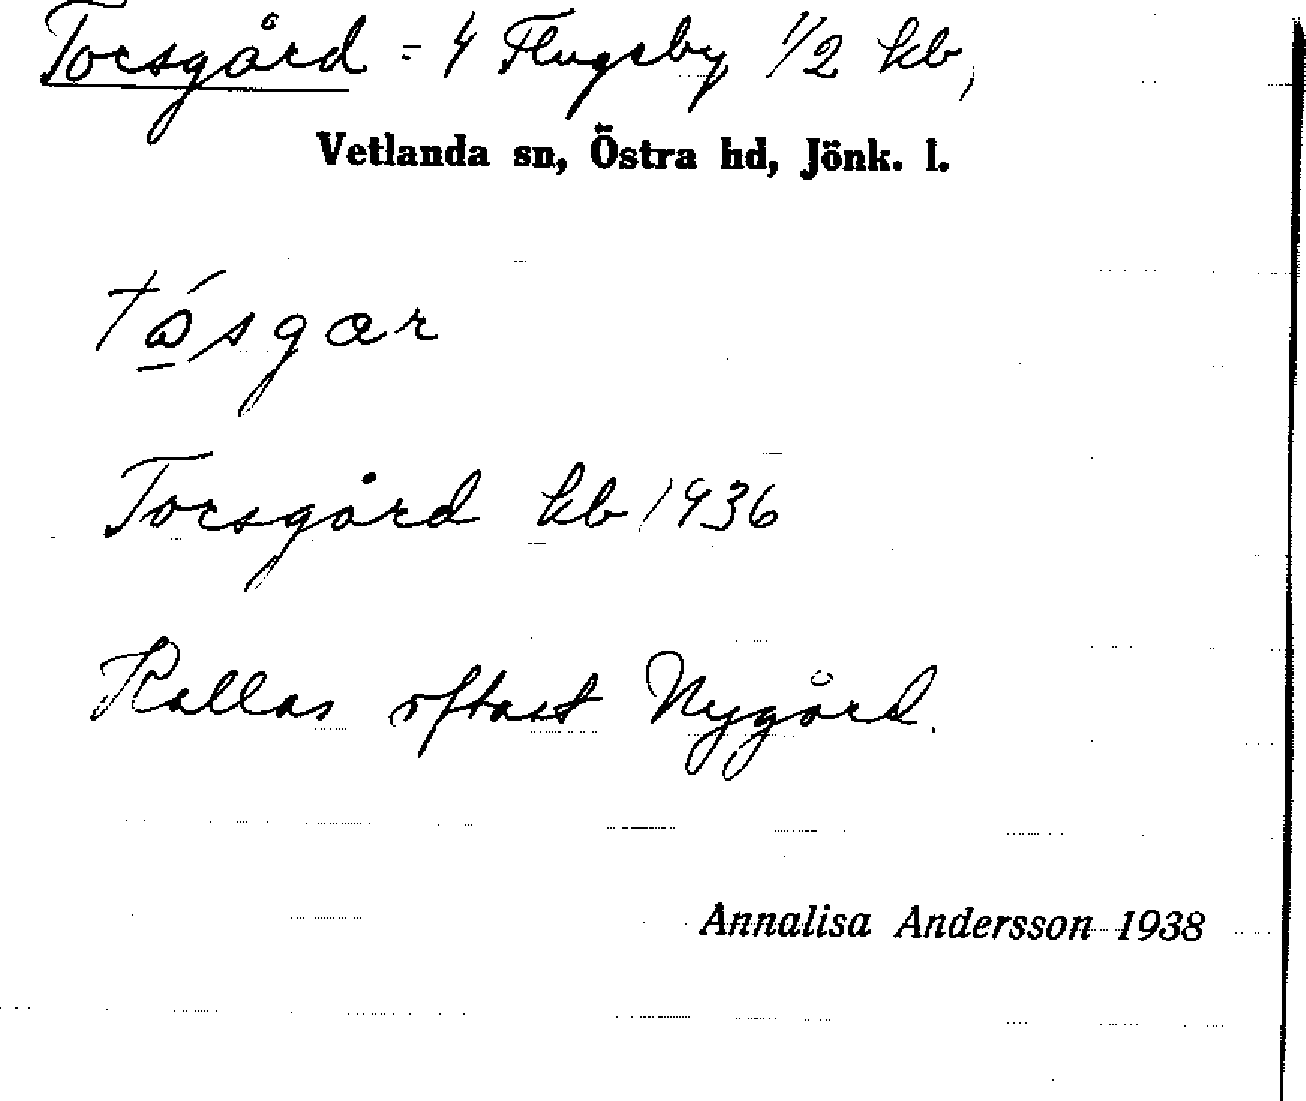 Torsgård = 4 Flugeby 1/2 kb,
Vetlanda sn, Östra hd, Jönk. l.
tåsgar
Torsgård kb 1936
Kallas oftast Nygård.
Annalisa Andersson 1938